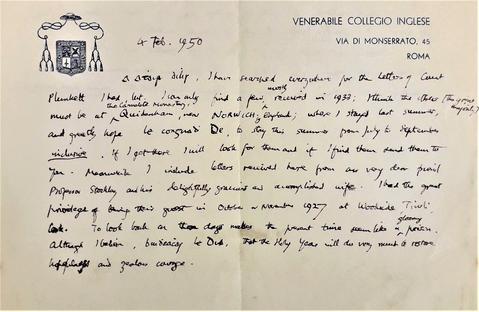 VENERABILE COLLEGIO INGLESE
VIA DI MONSERRATO, 45
ROMA
4 Feb. 1950
I have searched everywhere for the letters of Count
Plunkett I had, but I can only find a few, mostly received in 1933; I think the others (the great
must be at the Carmelite Monastery, Quidenham, near NORWICH, England; where I stayed last summer,
and greatly hope le congnaḋ Dé, to stay this summer from July to September
inclusive. If I get there I will look for them and if I find them send them to
you. Meanwhile I include letters received here from our very dear friend
Professor Stockley and his delightfully gracious and accomplished wife. I had the great
privilege of being their guest in October or November 1927 at Woodside Tivoli
To look back on those days makes the present time seem like a gloomy prison.
Although I believe, buidheachas le Dia, that the Holy Year will do very much to restore
hopefulness and zealous courage.